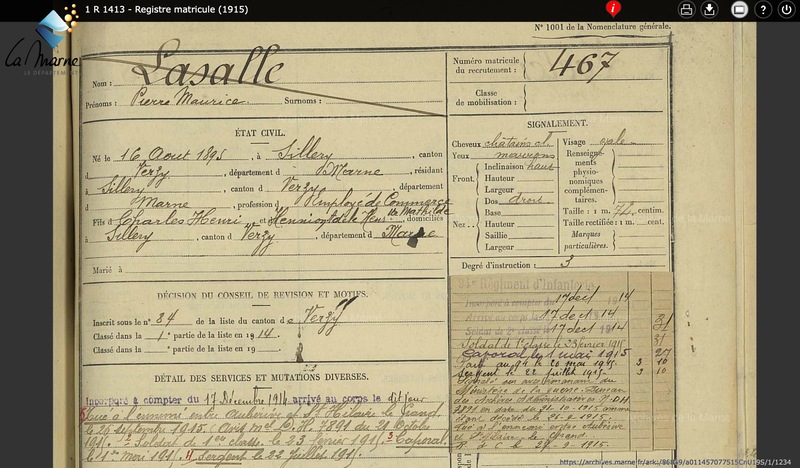 1 R 1413 - Registre matricule (1915)
La Marne
LE DÉPARTEMENT
N° 1001 de la Nomenclature générale.
Nom : Lasalle
Prénoms : Pierre Maurice. Surnoms :
Numéro matricule du recrutement : 467
Classe de mobilisation :
ÉTAT CIVIL.
Né le 16 Aout 1895, à Sillery, canton
d Verzy, département d Marne, résidant
à Sillery, canton d Verzy, département
d Marne, profession d Employé de Commerce
Fils d Charles Henri et Mathilde domiciliés
à Sillery, canton d Verzy, département d Marne
Marié à
SIGNALEMENT.
Cheveux châtains cl.
Yeux marrons
Front. Inclinaison haut
Hauteur
Largeur
Nez Dos droit
Base
Hauteur
Saillie
Largeur
Visage ovale
Renseignements physionomiques complémentaires.
Taille : 1 m. 72 centim.
Taille rectifiée : 1 m. cent.
Marques particulières.
Degré d'instruction : 3
DÉCISION DU CONSEIL DE REVISION ET MOTIFS.
Inscrit sous le n° 84 de la liste du canton de Verzy
Classé dans la 1e partie de la liste en 1914.
Classé dans la partie de la liste en 19
DÉTAIL DES SERVICES ET MUTATIONS DIVERSES.
Incorporé à compter du 17 Décembre 1914 arrivé au corps le dit jour
5 Tué à l'ennemi entre Auberive et St Hilaire le Grand
le 25 septembre 1915. Avis M. 7891 du 21 Octobre
1915. 2 Soldat de 1re classe le 23 fevrier 1915. 3 Caporal
le 1er mai 1915. 4 Sergent le 22 juillet 1915.
Régiment d'Infanterie
Incorporé à compter du 17 dec 1914
Arrivé au corps le 17 dec 1914
Soldat de 2e classe le 17 dec 1914
Soldat de 1e classe le 23 fevrier 1915
Caporal le 1 mai 1915
26 mai 1915.
Sergent le 22 juillet 1915.
https://archives.marne.fr/ark:/86869/a011457077515CnU19S/1/1234